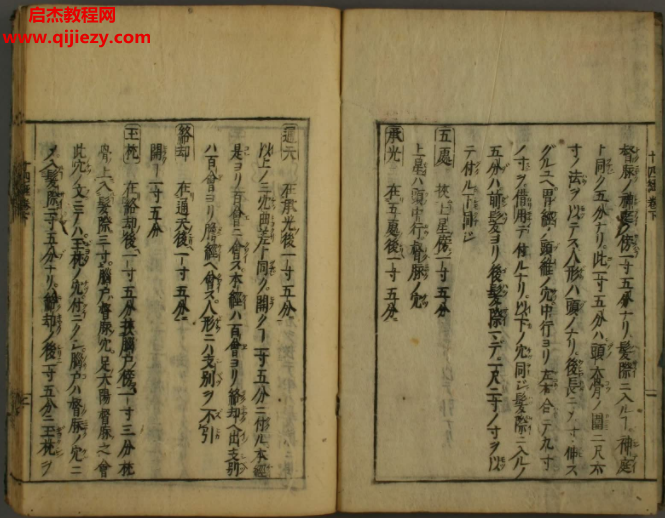 启杰教程网
www.qijiezy.com
督脉ノ神庭ノ傍一寸五分ナリ髪際ニ入ル
ト同ク五分ナリ此一寸五分ハ頭ノ
寸ノ法ヲ以テス人形ハ頭ノナリ後長
胃經ノ頭維ノ穴中行ヨリ左右合テ九寸
ノ寸ヲ借用テ付ルナリ以下ノ穴同シ髪際ニ入ルノ
五分ハ前髪ヨリ後髪際マデ一尺二寸ノ寸ヲ以
テ付ル下同シ
五處 挾上星傍一寸五分
上星ハ頭中行督脉ノ穴
承光 在五處後一寸五分
通天 在承光後一寸五分
以上ノ三穴曲差ト同ク開クー寸五分ニ付ル本經
是ヨリ百會ニ會ス本經ハ百會ヨリ絡却ヘ出支別
ハ百會ヨリ膽經ヘ會ス人形ニハ支別ヲ不引
絡却 在通天後一寸五分
開一寸五分
玉枕 在絡却後一寸五分挾腦戸傍一寸三分枕
骨上入髪際三寸 腦戸督脉穴足太陽督脉之會
此穴ノ文ニテハ玉枕ノ穴付ニクシ腦戸ハ督脉ノ穴ニ
入髪際二寸五分ナリ絡却ノ後一寸五分ニ玉枕ヲ